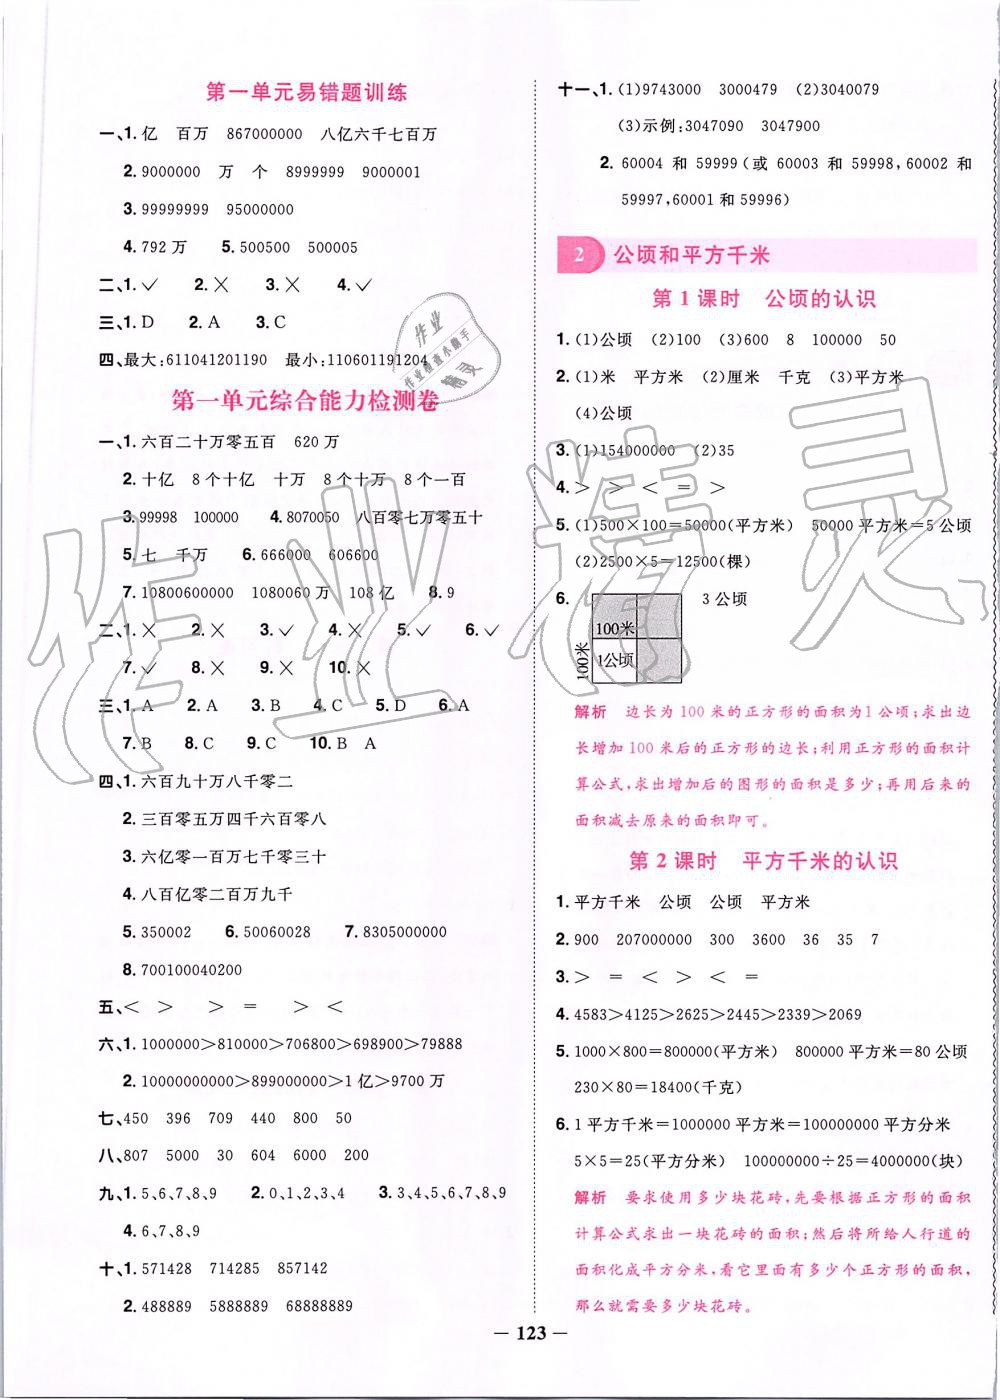 第一单元易错题训练
一、1. 亿 百万 867000000 八亿六千七百万
2. 9000000 万 个 8999999 9000001
3. 99999999 95000000
4. 792万 5. 500500 500005
二、1. ✓ 2. ✗ 3. ✗ 4. ✓
三、1. D 2. A 3. C
四、最大:611041201190 最小:110601191204
第一单元综合能力检测卷
一、1. 六百二十万零五百 620万
2. 十亿 8个十亿 十万 8个十万 8个一百
3. 99998 100000 4. 8070050 八百零七万零五十
5. 七 千万 6. 666000 606600
7. 10800600000 1080060万 108亿 8. 9
二、1. ✗ 2. ✗ 3. ✓ 4. ✗ 5. ✓ 6. ✓
7. ✓ 8. ✗ 9. ✗ 10. ✗
三、1. A 2. A 3. B 4. C 5. D 6. A
7. B 8. C 9. C 10. B A
四、1. 六百九十万八千零二
2. 三百零五万四千六百零八
3. 六亿零一百万七千零三十
4. 八百亿零二百万九千
5. 350002 6. 50060028 7. 8305000000
8. 700100040200
五、< > > = > <
六、1. 1000000>810000>706800>698900>79888
2. 10000000000>899000000>1亿>9700万
七、450 396 709 440 800 50
八、807 5000 30 604 6000 200
九、1. 5、6、7、8、9 2. 0、1、2、3、4 3. 3、4、5、6、7、8、9
4. 6、7、8、9
十、1. 571428 714285 857142
2. 488889 5888889 68888889
十一、1. (1)9743000 3000479 (2)3040079
(3)示例:3047090 3047900
2. 60004 和 59999(或 60003 和 59998,60002 和
59997,60001 和 59996)
2 公顷和平方千米
第1课时 公顷的认识
1. (1)公顷 (2)100 (3)600 8 100000 50
2. (1)米 平方米 (2)厘米 千克 (3)平方米
(4)公顷
3. (1)154000000 (2)35
4. > > < = >
5. (1)500×100=50000(平方米) 50000平方米=5公顷
(2)2500×5=12500(棵)
6. 3公顷
100米
100米
1公顷
解析 边长为100米的正方形的面积为1公顷;求出边
长增加100米后的正方形的边长;利用正方形的面积计
算公式,求出增加后的图形的面积是多少;再用后来的
面积减去原来的面积即可。
第2课时 平方千米的认识
1. 平方千米 公顷 公顷 平方米
2. 900 207000000 300 3600 36 35 7
3. > = < > < =
4. 4583>4125>2625>2445>2339>2069
5. 1000×800=800000(平方米) 800000平方米=80公顷
230×80=18400(千克)
6. 1平方千米=1000000平方米=100000000平方分米
5×5=25(平方分米) 100000000÷25=4000000(块)
解析 要求使用多少块花砖,先要根据正方形的面积
计算公式求出一块花砖的面积;然后将所给人行道的
面积化成平方分米,看它里面有多少个正方形的面积,
那么就需要多少块花砖。
— 123 —
作业精灵
作业
作业检查小助手
精灵